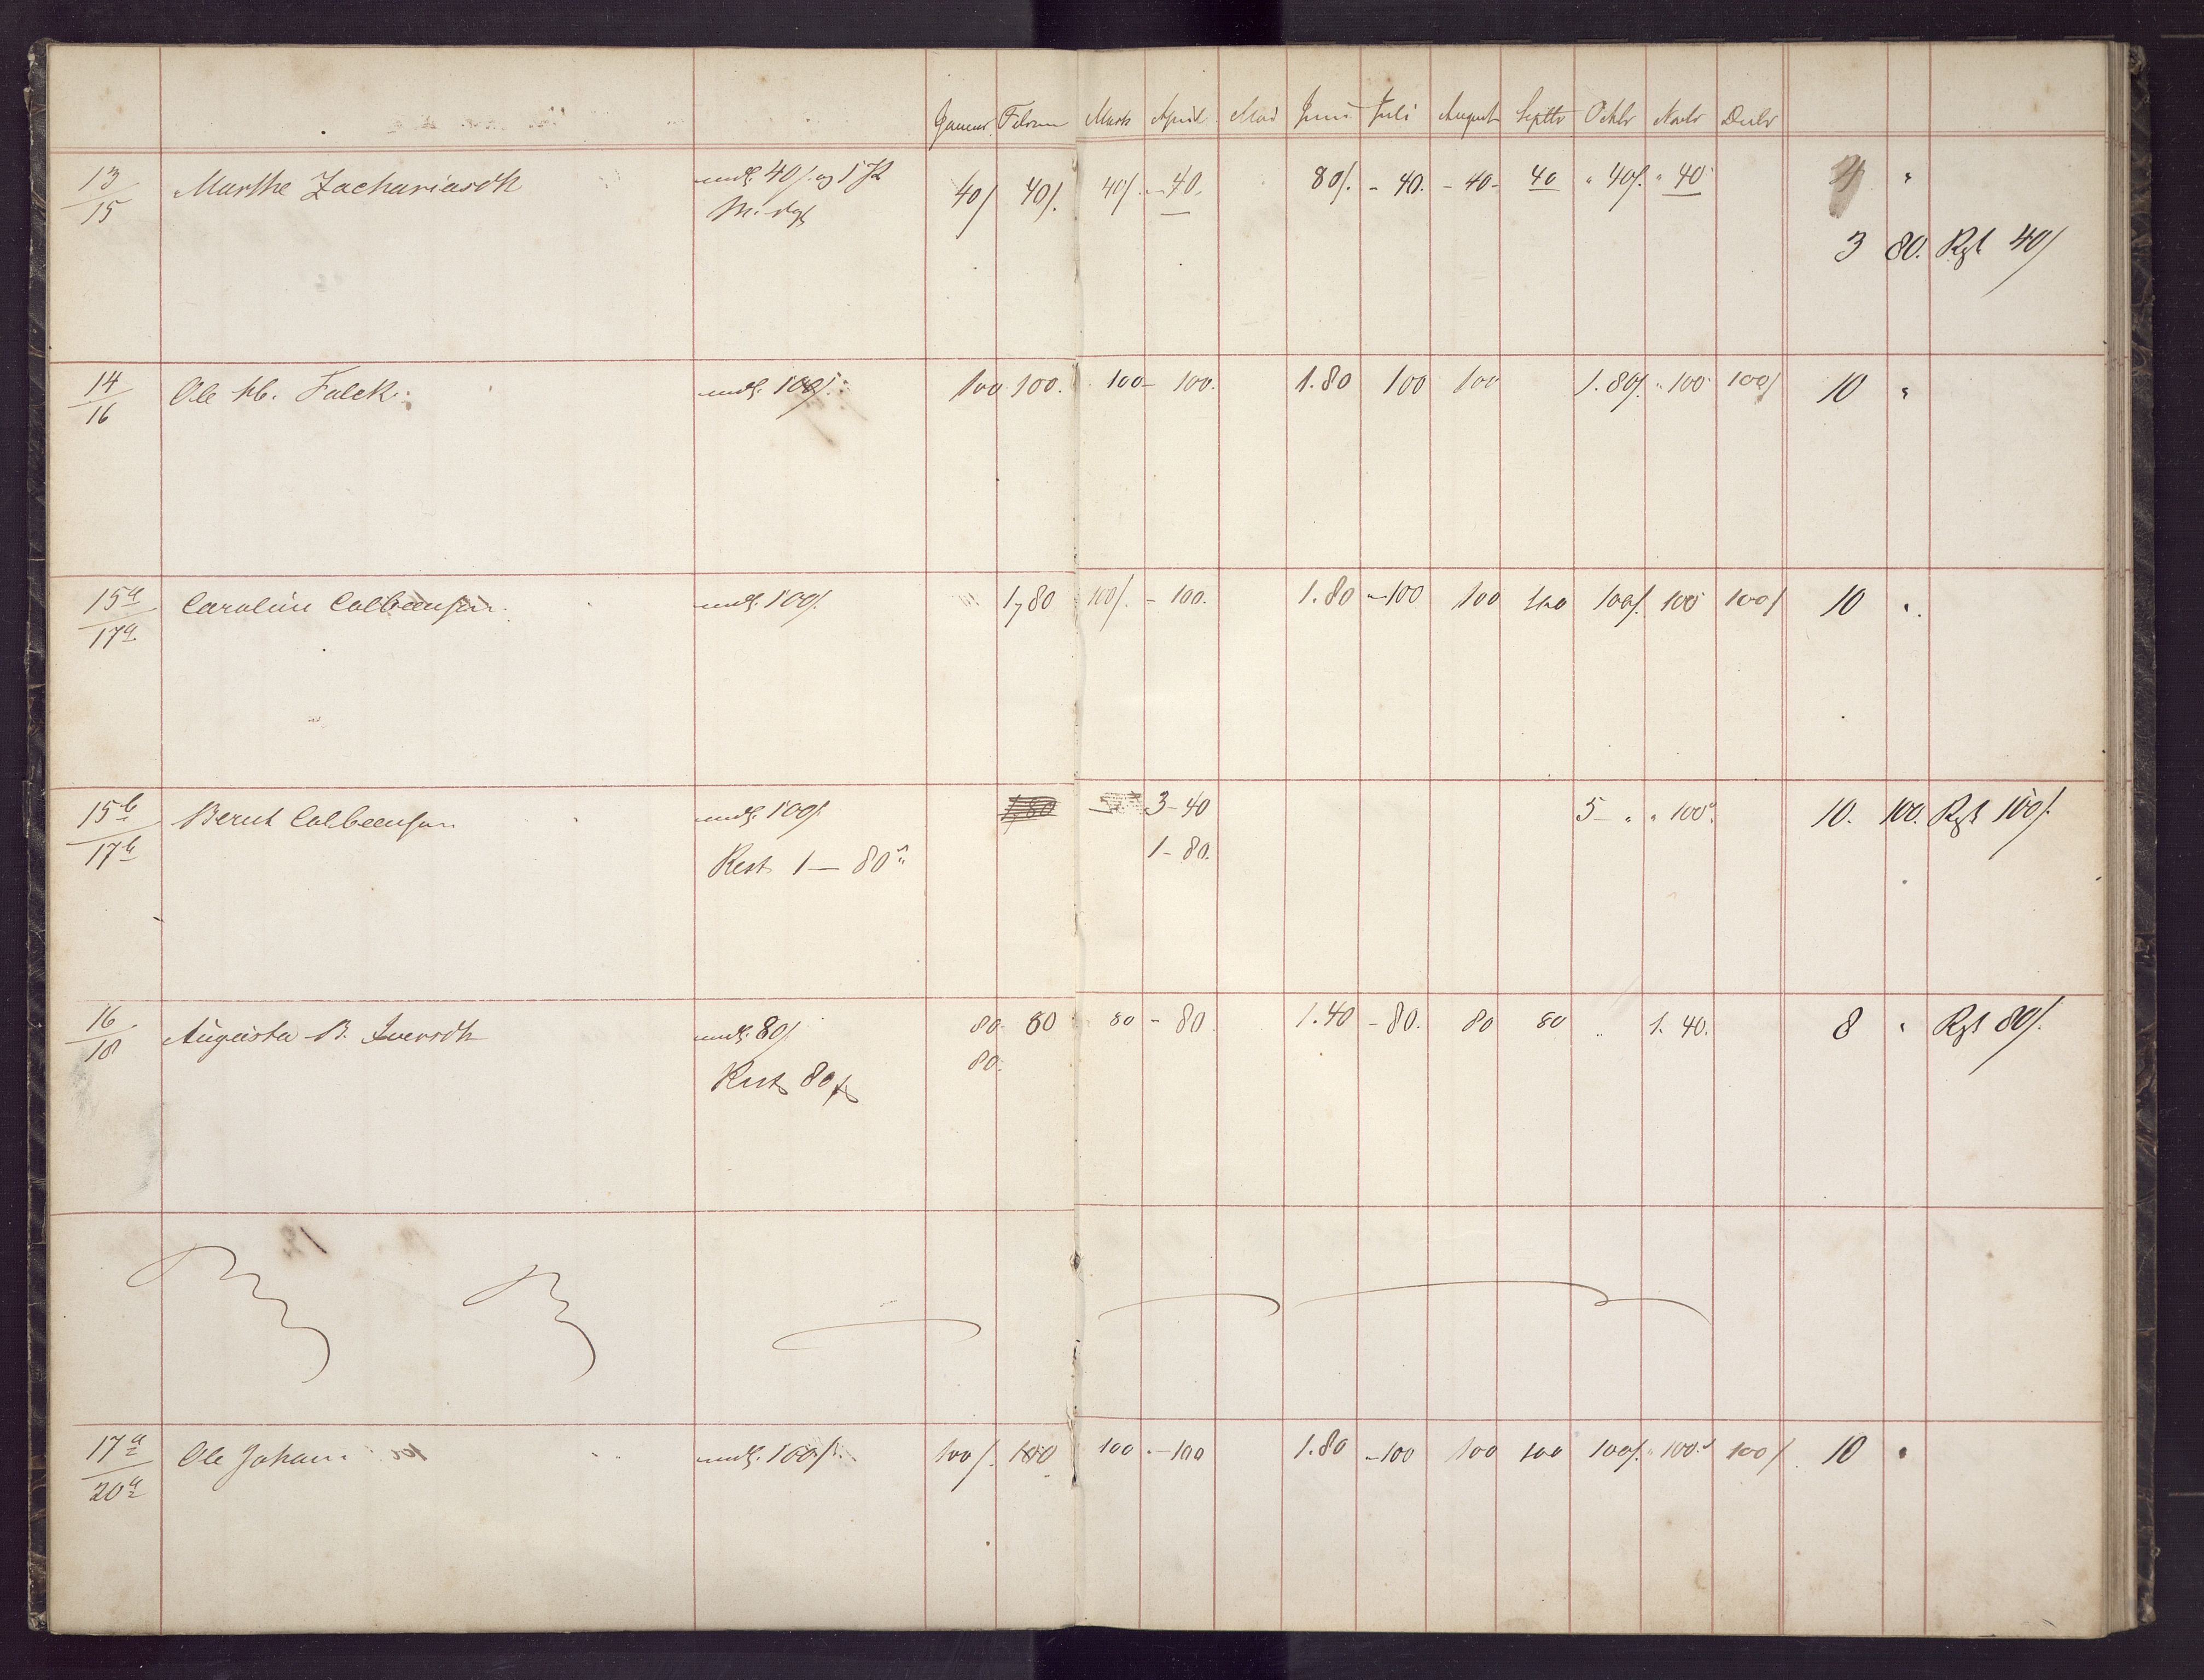 Januar Februar Marts April Mai Juni Juli August Septbr Octbr Novbr Decbr
13/15 Marthe Zachariasdtr mdl. 40/. og 1 40/ 40/. 40/. - 40. 80/. - 40. - 40 - 40 " 40/. " 40 4 "
3 80. Rest 40/
14/16 Ole Falck. mdl. 100/. 100 100. 100 - 100. 1.80 100 100 1.80/. " 100 100/ 10 "
15a/17a Caroline Colbeensen. mdl. 100/. 1,80 100/. - 100. 1.80 - 100 100 100 100/. 100 100/ 10 "
15b/17b Bernt Colbeensen mdl. 100/. 1,80 3 - 40 5 - " " 100 10. 100. Rest 100/.
Rest 1 — 80 1 - 80.
16/18 Augusta B. Iversdtr mdl. 80/. 80. 80 80 - 80 1.40 - 80. 80 80 " 1. 40. 8 " Rest 80/.
Rest 80 80.
17a/20a Ole Johan. mdl. 100/. 100/. 100 100 - 100 1.80 - 100 100 100 100/. " 100. 100/. 10 "